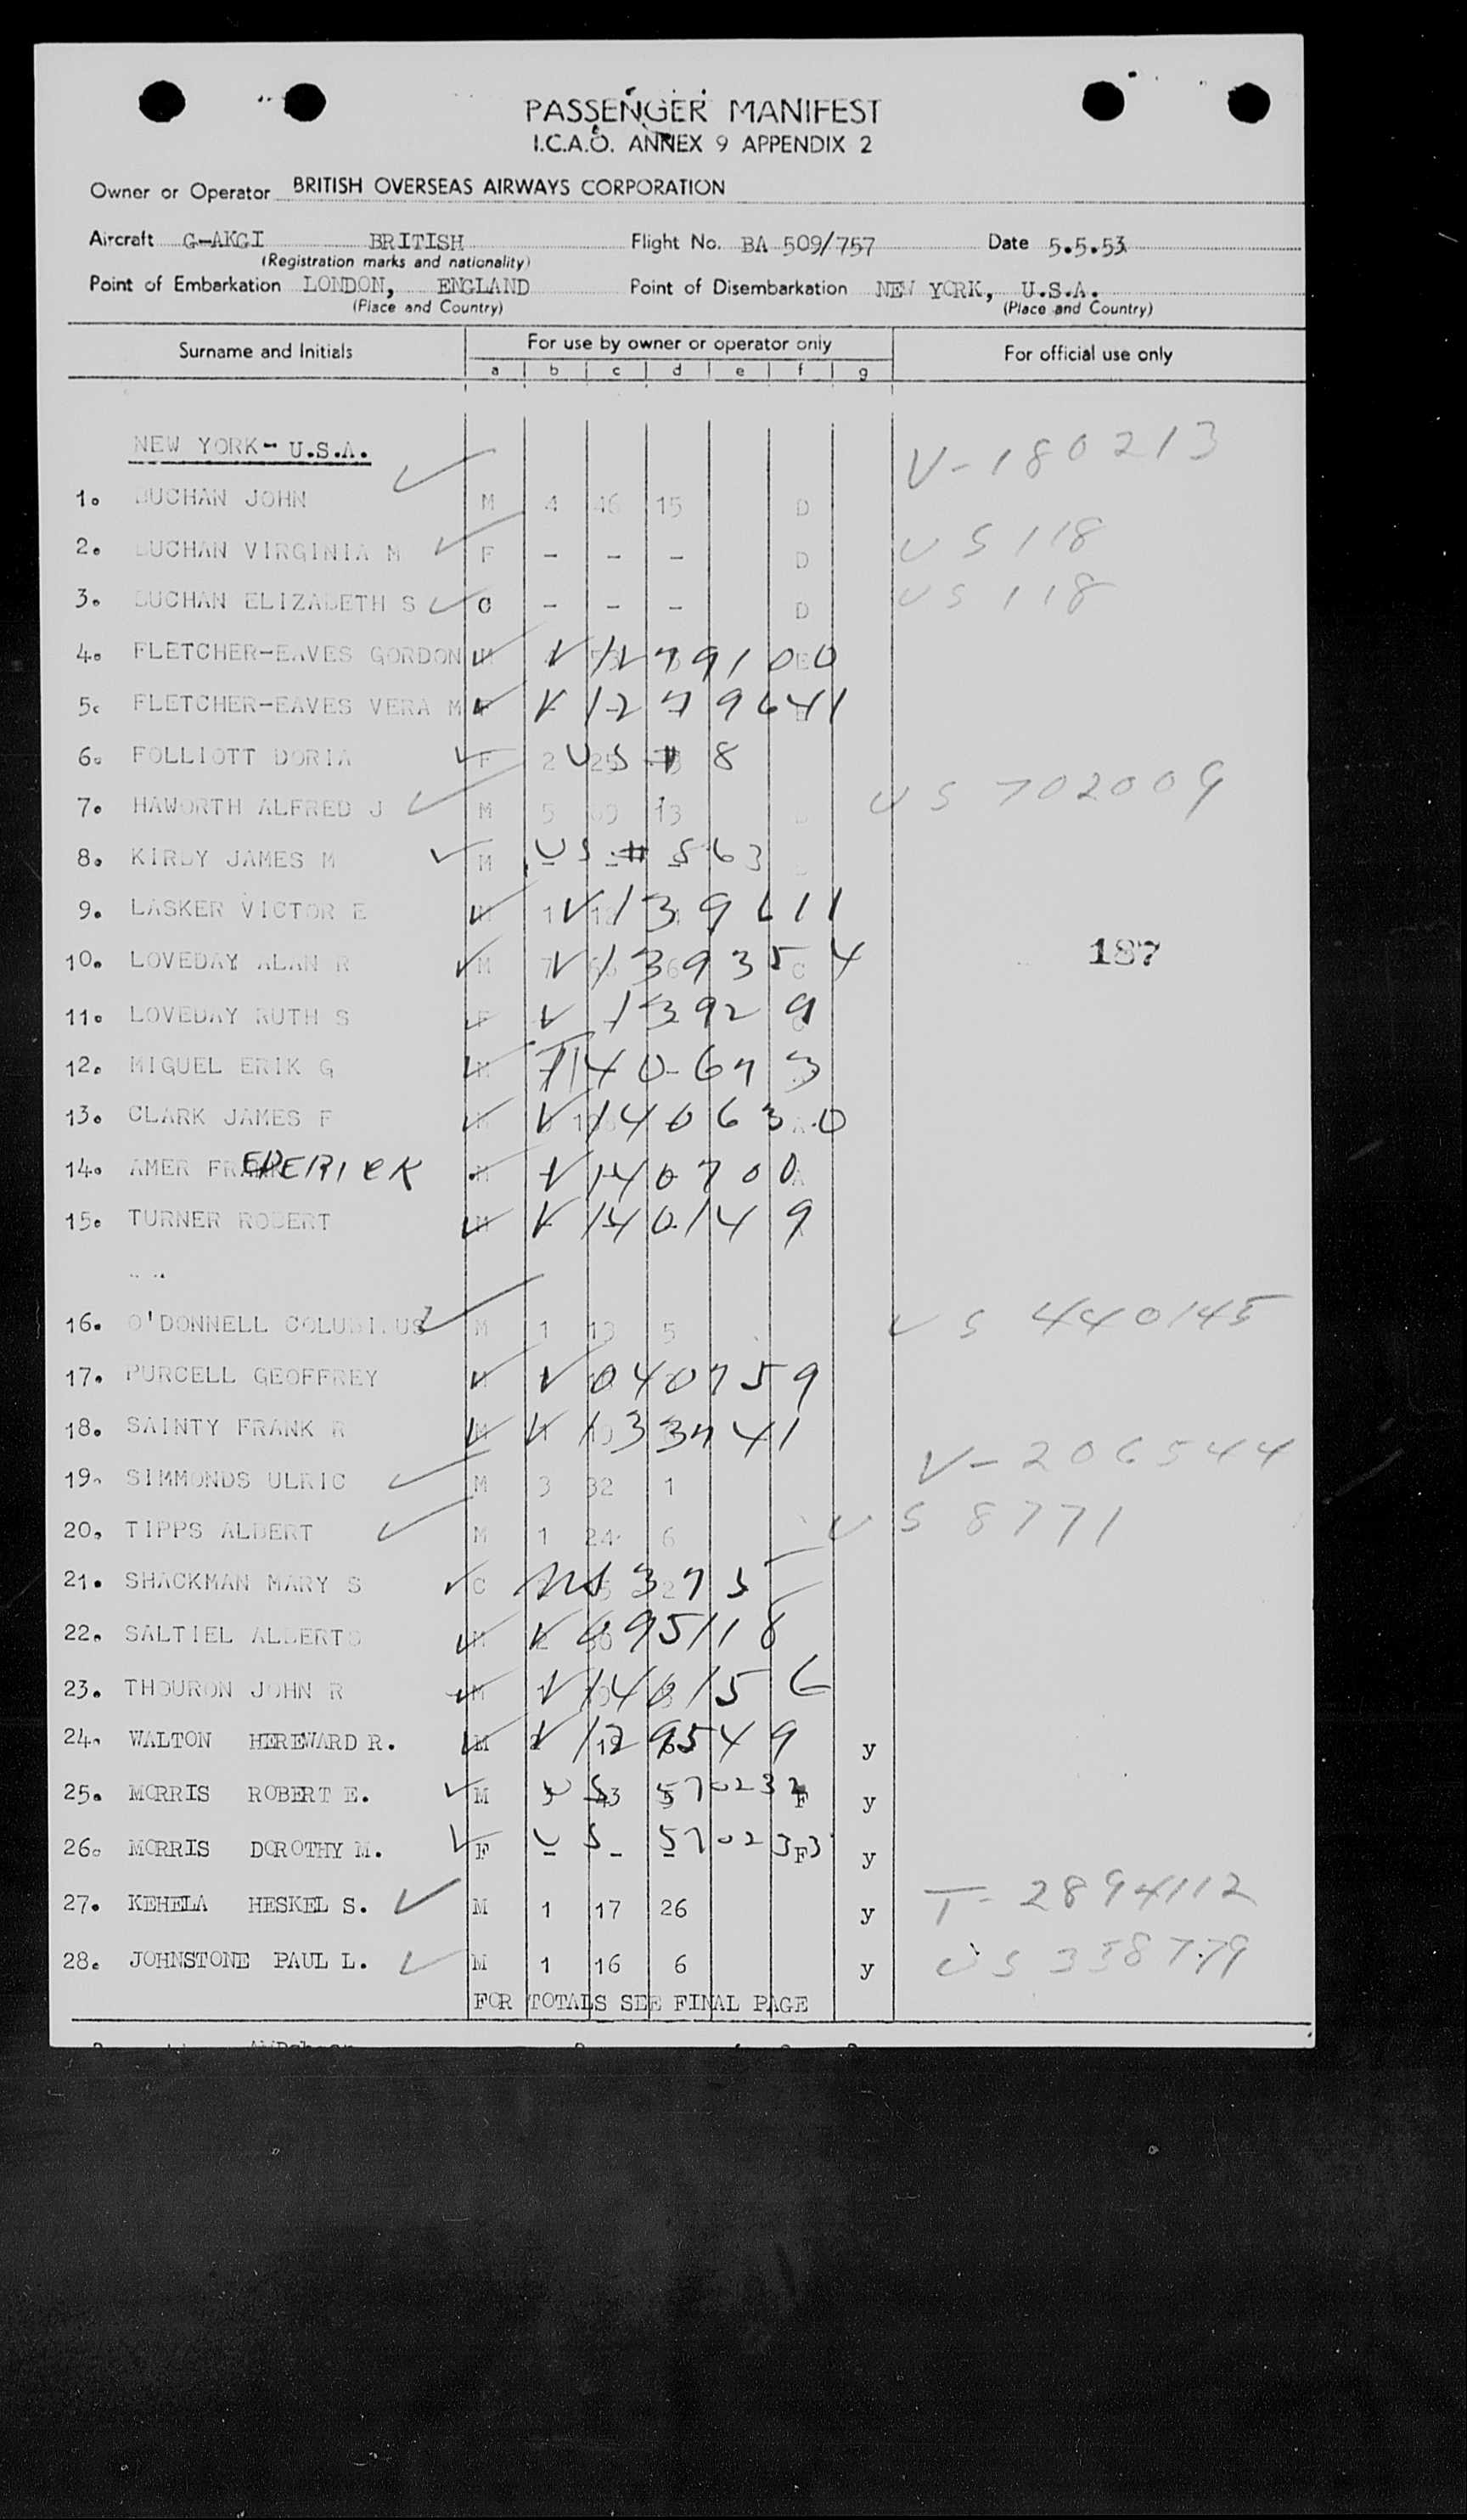 PASSENGER MANIFEST
I.C.A.O. ANNEX 9 APPENDIX 2
Owner or Operator BRITISH OVERSEAS AIRWAYS CORPORATION
Aircraft G-AKGI BRITISH Flight No. BA 509/757 Date 5.5.53
(Registration marks and nationality)
Point of Embarkation LONDON, ENGLAND Point of Disembarkation NEW YORK, U.S.A.
(Place and Country) (Place and Country)
Surname and Initials For use by owner or operator only For official use only
a b c d e f g
NEW YORK- U.S.A. V-180213
1. BUCHAN JOHN M 4 46 15 D
2. BUCHAN VIRGINIA M F - - - D US 118
3. BUCHAN ELIZABETH S C - - - D US 118
4. FLETCHER-EAVES GORDON
5. FLETCHER-EAVES VERA M V 1279641
6. FOLLIOTT DORIA F 2 25 US # 8
7. HAWORTH ALFRED J M 5 13 US 702009
8. KIRBY JAMES M M US # 563
9. LASKER VICTOR E
10. LOVEDAY ALAN R M V 139354 C
187
11. LOVEDAY RUTH S F V 13929
12. MIGUEL ERIK G
13. CLARK JAMES F V 140630
14. AMER FREDERICK V 140700
15. TURNER ROBERT M V 140149
16. O'DONNELL COLUMBUS M 1 13 5 US 440145
17. PURCELL GEOFFREY V 040759
18. SAINTY FRANK R M V 133741
19. SIMMONDS ULRIC M 3 32 1 V-206544
20. TIPPS ALBERT M 1 24 6 US 8771
21. SHACKMAN MARY S C
22. SALTIEL ALBERTO
23. THOURON JOHN R M V 140156
24. WALTON HEREWARD R. M V 129549 y
25. MORRIS ROBERT E. M US 570232 F y
26. MORRIS DOROTHY M. F US 570233 F y
27. KEHELA HESKEL S. M 1 17 26 y T-2894112
28. JOHNSTONE PAUL L. M 1 16 6 y US 358779
FOR TOTALS SEE FINAL PAGE